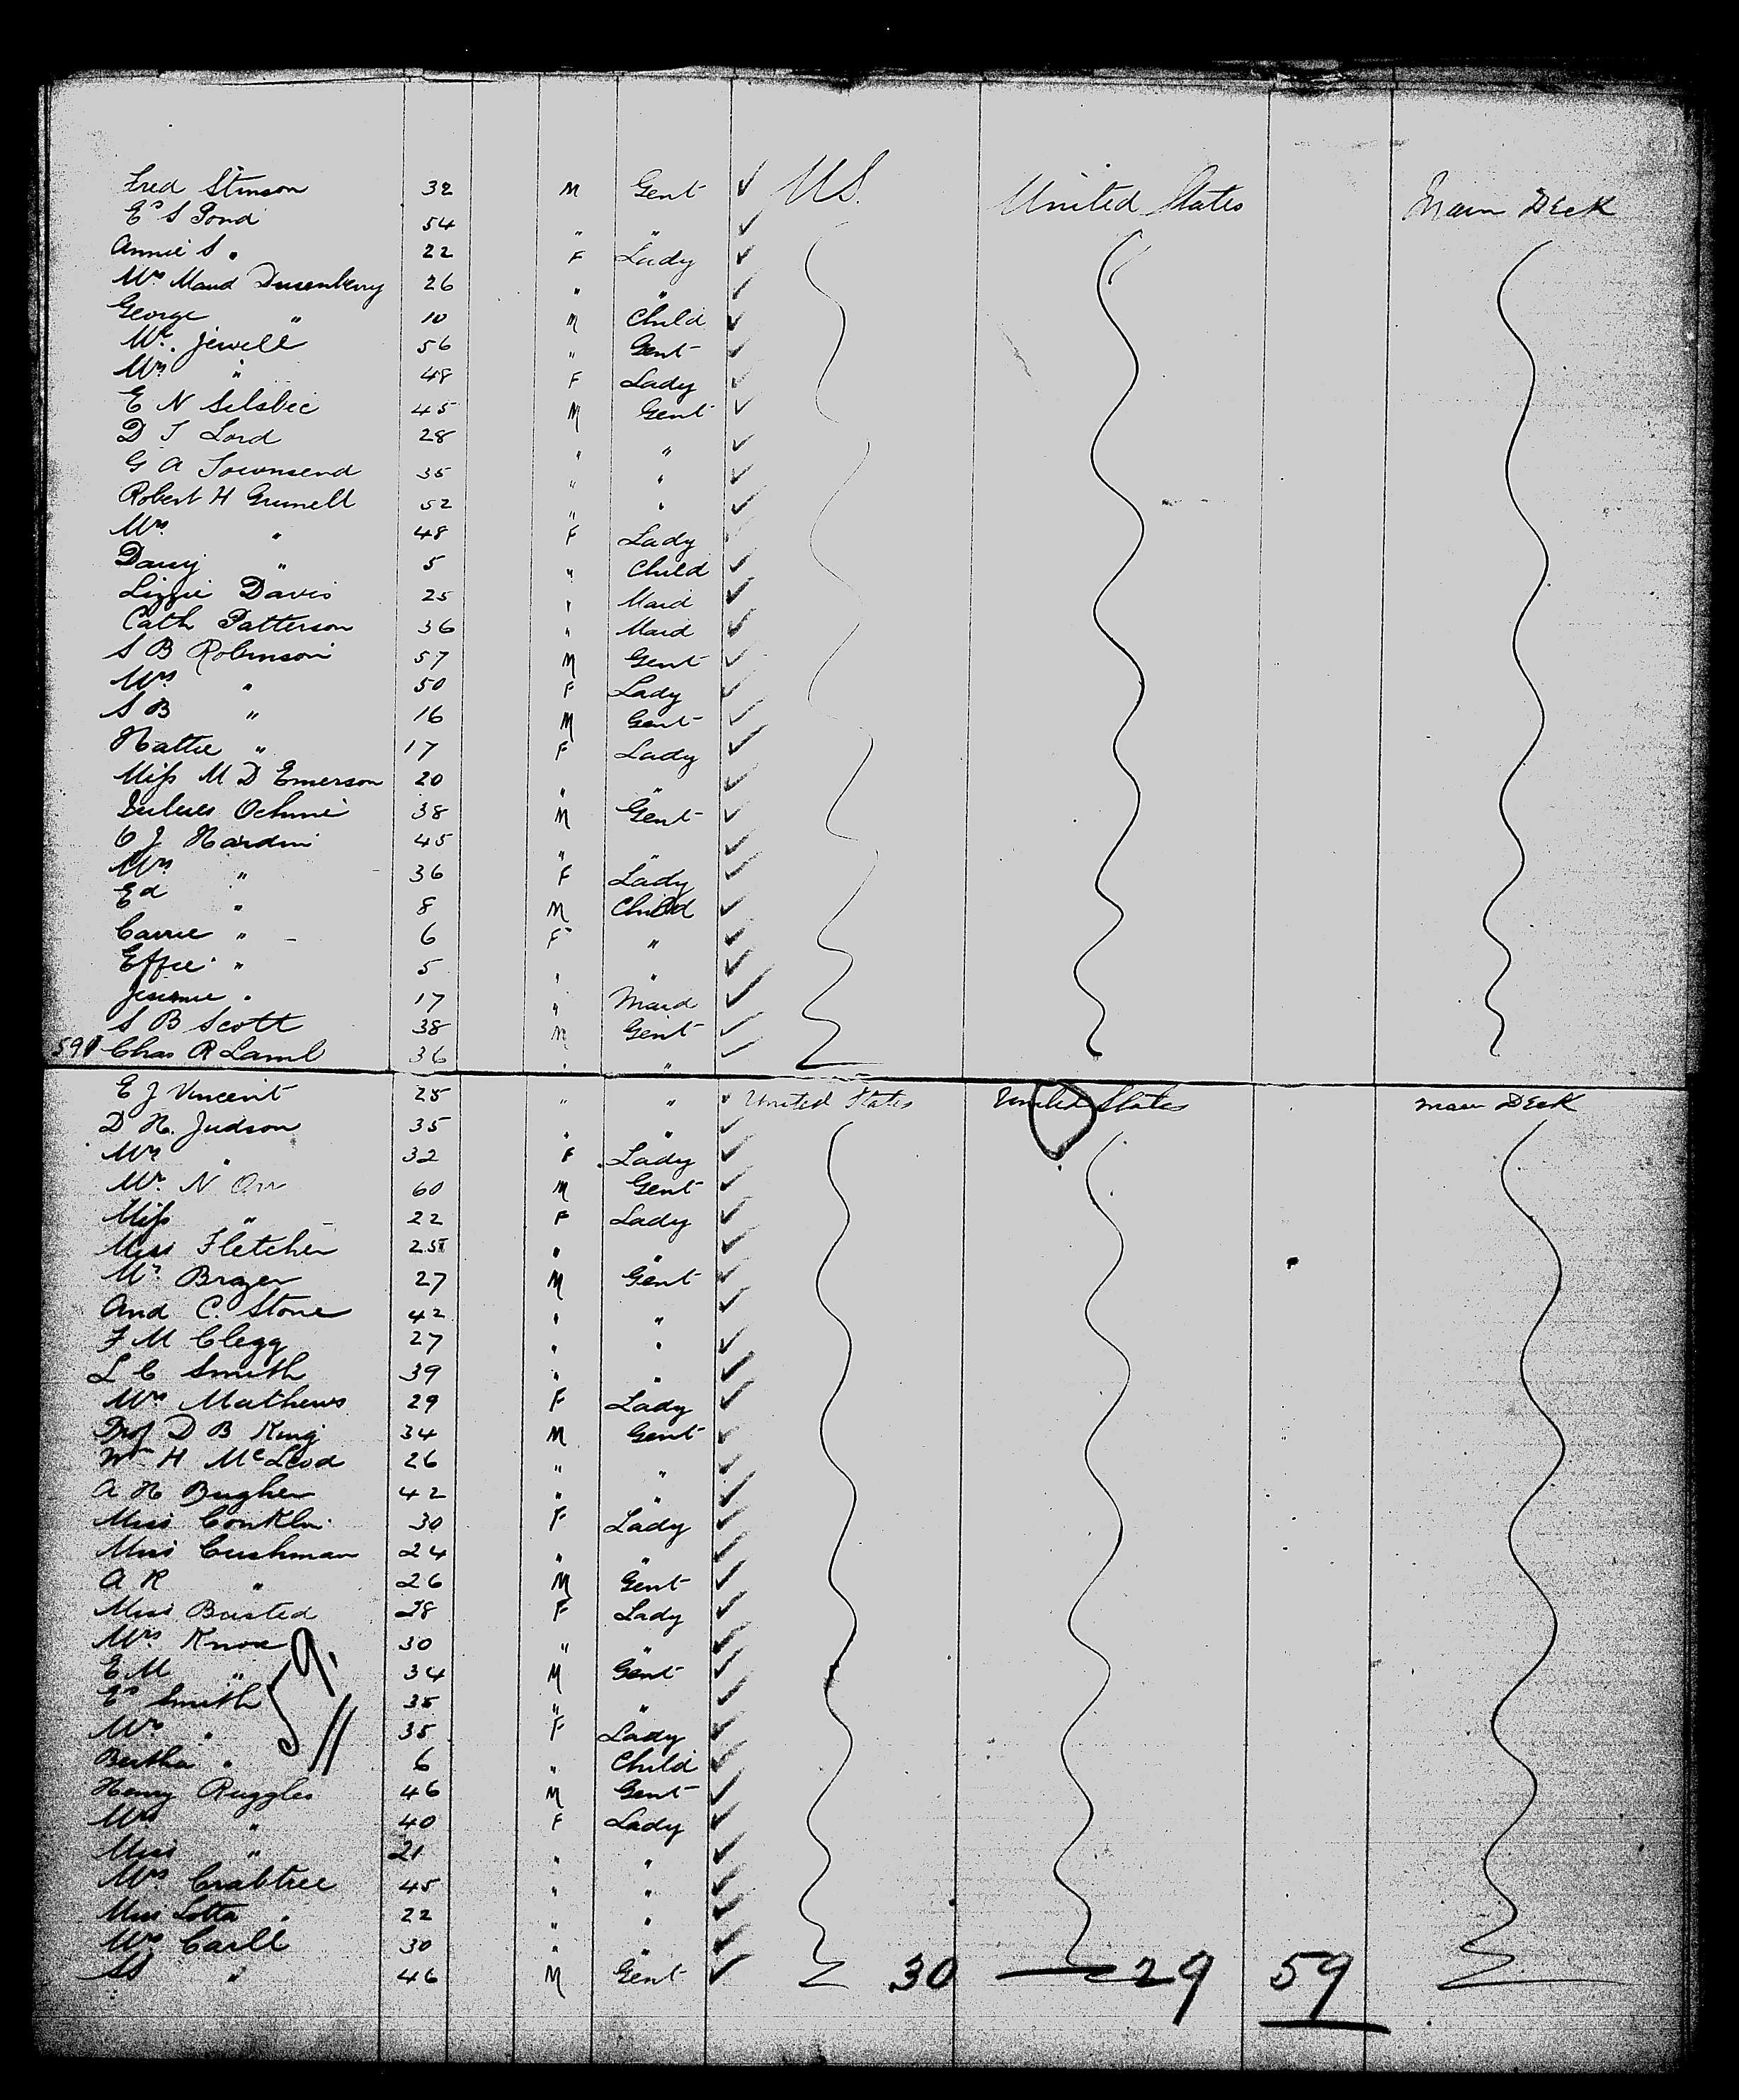 Fred Stinson 32 M Gent ✓ U.S. United States Main Deck
Es S Pond 54 " " ✓
Annie S " 22 F Lady ✓
Mrs Maud Dusenberry 26 " " ✓
George " 10 M Child ✓
Mr. Jewell 56 " Gent ✓
Mrs " 48 F Lady ✓
E N Silsbee 45 M Gent ✓
D T Lord 28 " " ✓
G A Townsend 35 " " ✓
Robert H Grinnell 52 " " ✓
Mrs " 48 F Lady
Daisy " 5 " Child ✓
Lizzie Davis 25 " Maid ✓
Cath Patterson 36 " Maid ✓
S B Robinson 57 M Gent ✓
Mrs " 50 F Lady ✓
S B " 16 M Gent ✓
Hattie " 17 F Lady ✓
Miss M D Emerson 20 " " ✓
Julius Oehme 38 M Gent ✓
O J Hardin 45 " " ✓
Mrs " 36 F Lady ✓
Ed " 8 M Child ✓
Carrie " 6 F " ✓
Effie " 5 " " ✓
" 17 " Maid ✓
S B Scott 38 M Gent ✓
Chas R Lamb 36 " " ✓
E J Vincent 28 " " ✓ United States United States Main Deck
D H. Judson 35 " " ✓
Mrs " 32 F Lady ✓
Mr. N Orr 60 M Gent ✓
Miss " 22 F Lady ✓
Miss Fletcher 25 " " ✓
Mr. Brazer 27 M Gent ✓
And C. Stone 42 " " ✓
F M Clegg 27 " " ✓
L C Smith 39 " " ✓
Mrs Mathews 29 F Lady ✓
Prof D B King 34 M Gent ✓
Wm H McLeod 26 " " ✓
A H Bugher 42 " " ✓
Miss Conklin 30 F Lady ✓
Miss Cushman 24 " " ✓
A R " 26 M Gent ✓
Miss 28 F Lady ✓
Mrs. Knox 30 " " ✓
E M " 34 M Gent ✓
Es Smith 35 " " ✓
Mrs " 35 F Lady ✓
Bertha " 6 " Child ✓
59
Henry Ruggles 46 M Gent ✓
Mrs " 40 F Lady ✓
Miss " 21 " " ✓
Mrs. Crabtree 45 " " ✓
Miss Lotta " 22 " " ✓
Mrs Carll 30 " " ✓
" 46 M Gent ✓ 30 — 29 59